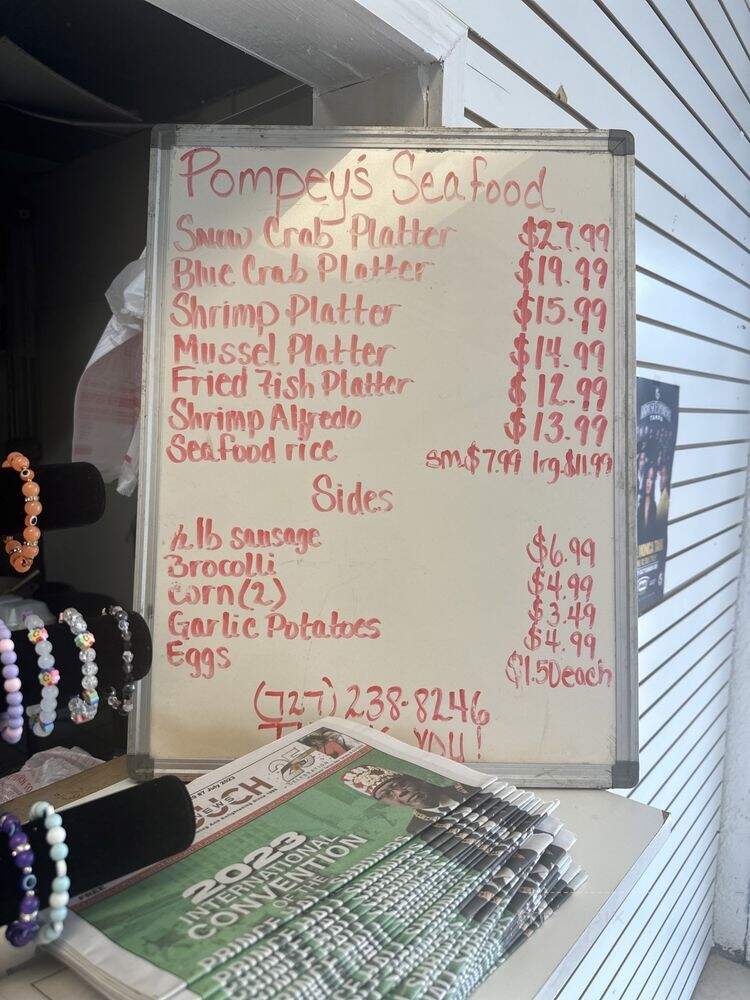 Pompey's Seafood
Snow Crab Platter $27.99
Blue Crab Platter $19.99
Shrimp Platter $15.99
Mussel Platter $14.99
Fried Fish Platter $12.99
Shrimp Alfredo $13.99
Seafood rice sm.$7.99 lrg.$11.99
Sides
½ lb sausage $6.99
Brocolli $4.99
corn (2) $3.49
Garlic Potatoes $4.99
Eggs $1.50each
(727) 238-8246
YOU!
25
NEWS
FREE
2023
INTERNATIONAL
CONVENTION
OF THE